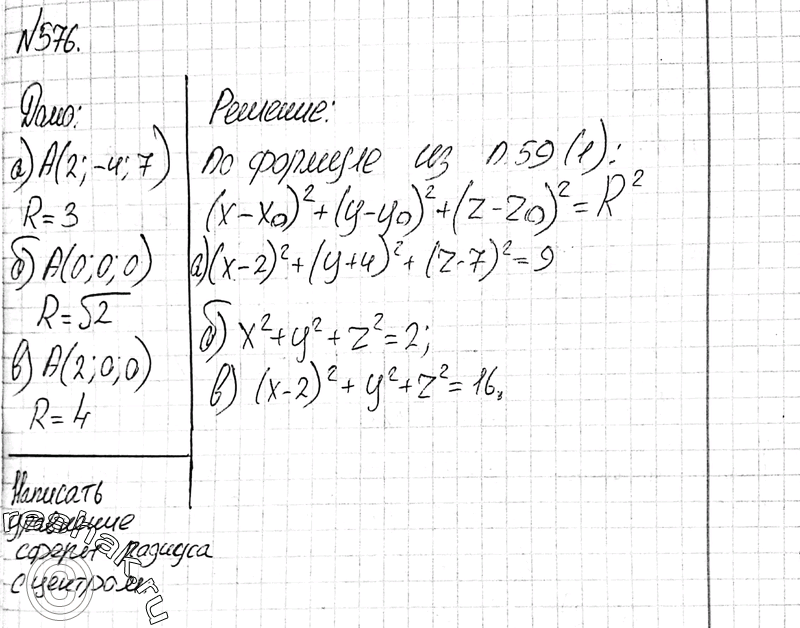 №576.
Дано:
а) A(2; -4; 7)
R=3
б) A(0; 0; 0)
R=√2
в) A(2; 0; 0)
R=4
Написать
уравнение
сферы радиуса
с центром
Решение:
по формуле из п.59 (1):
(x-x₀)²+(y-y₀)²+(z-z₀)²=R²
а) (x-2)²+(y+4)²+(z-7)²=9
б) x²+y²+z²=2;
в) (x-2)²+y²+z²=16.
reshak.ru